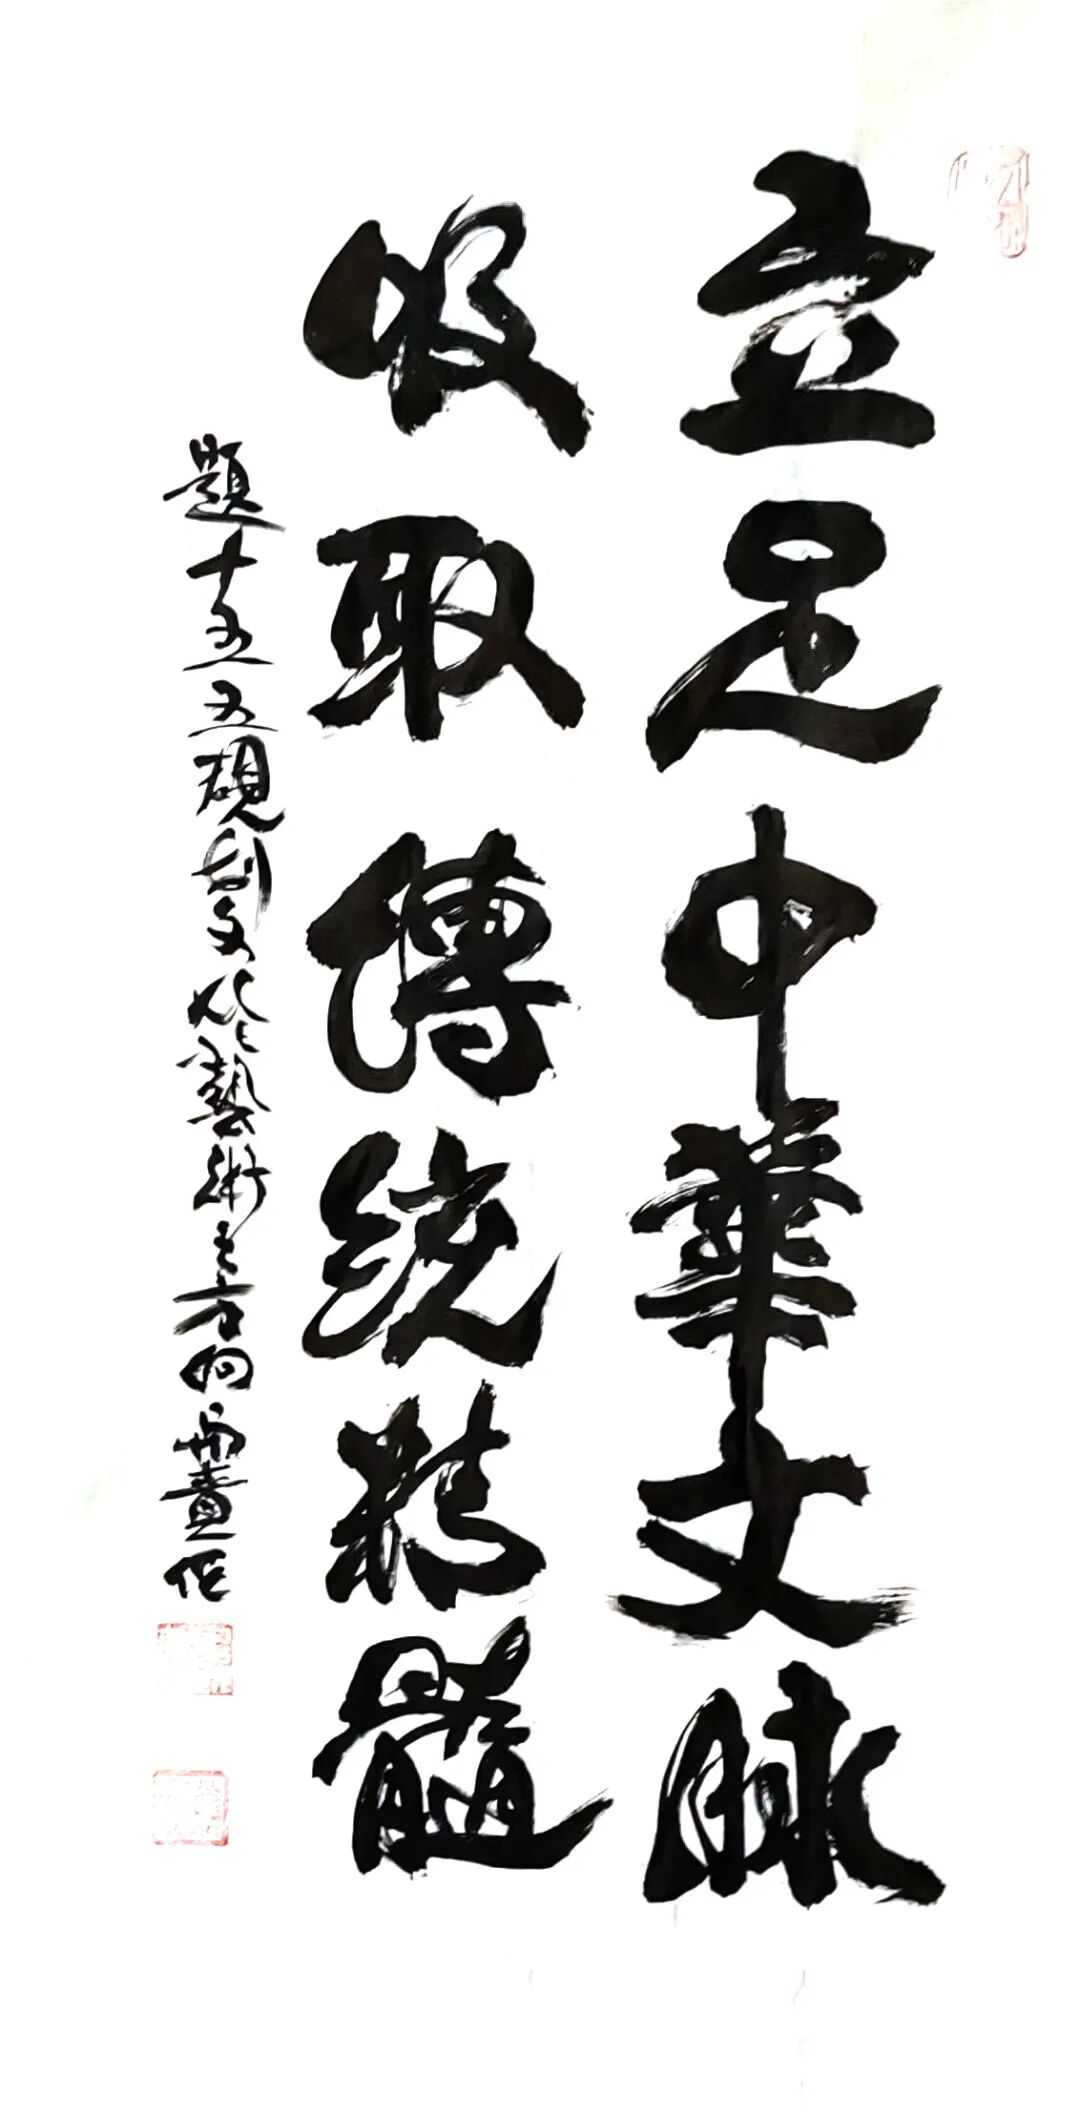 立足中華文脉
吸取傳統精髓
題十五五規划文化藝術之方向